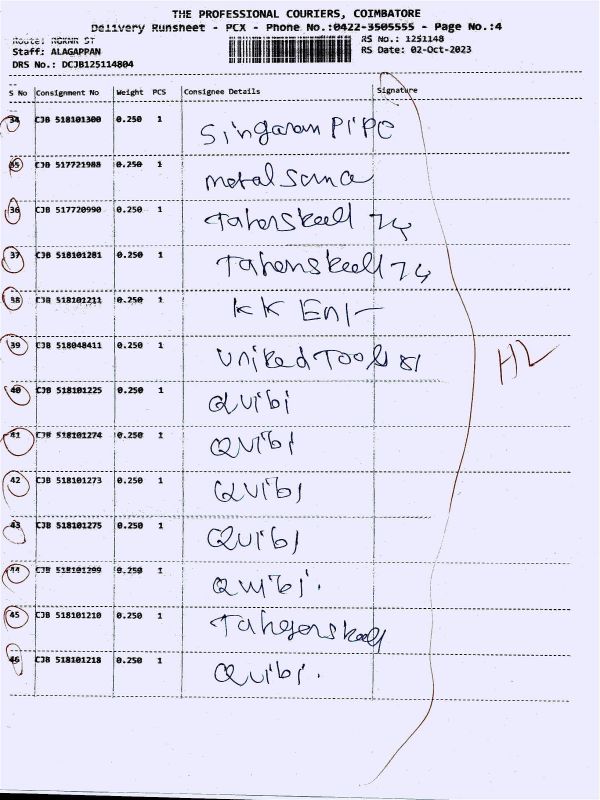 THE PROFESSIONAL COURIERS, COIMBATORE
Delivery Runsheet - PCX - Phone No.:0422-3505555 - Page No.:4
Route: ST RS No.: 1251148
Staff: ALAGAPPAN RS Date: 02-Oct-2023
DRS No.: DCJB125114804
S No Consignment No Weight PCS Consignee Details Signature
34 CJB 518101300 0.250 1 Singaram PIPe
35 CJB 517721988 0.250 1 metal
36 CJB 517720990 0.250 1 74
37 CJB 518101281 0.250 1 74
38 CJB 518101211 0.250 1 KK
39 CJB 518048411 0.250 1 United Tools 81
H2
40 CJB 518101225 0.250 1 Quibi
41 CJB 518101274 0.250 1 Quibi
42 CJB 518101273 0.250 1 Quibi
43 CJB 518101275 0.250 1 Quibi
44 CJB 518101299 0.250 1 Quibi.
45 CJB 518101210 0.250 1
46 CJB 518101218 0.250 1 Quibi.